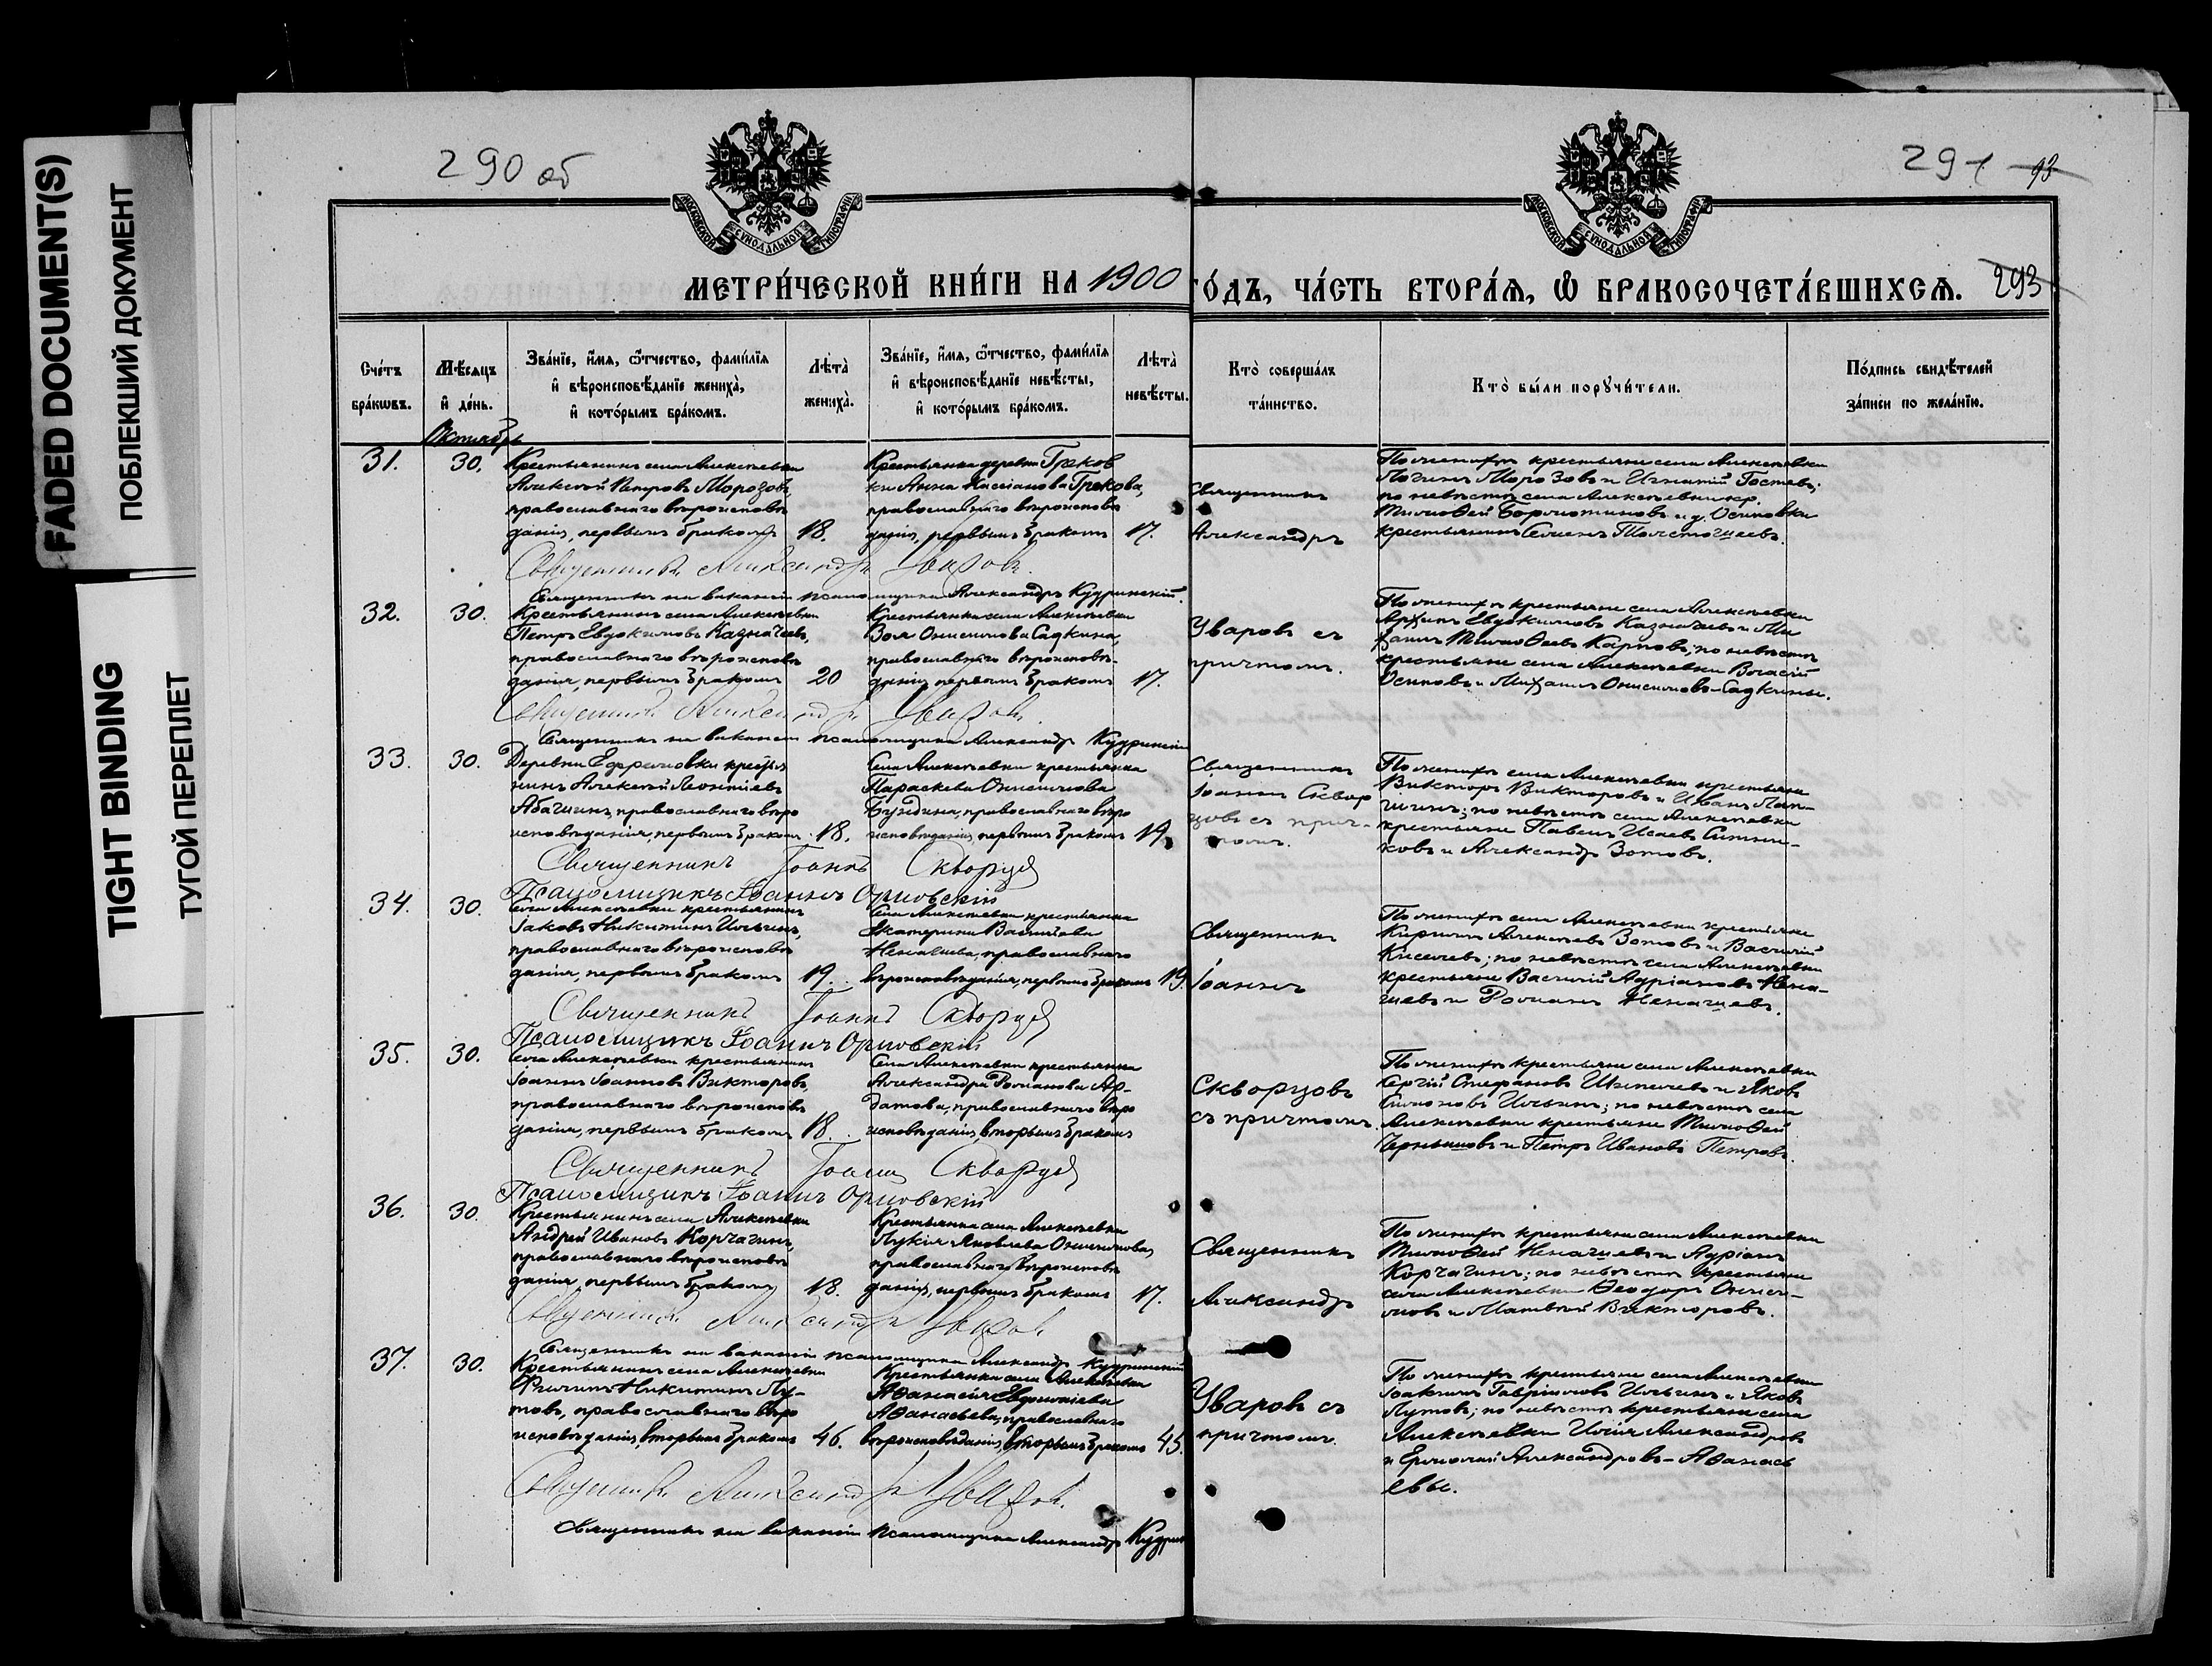 FADED DOCUMENT(S)
ПОБЛЕКШИЙ ДОКУМЕНТ
TIGHT BINDING
ТУГОЙ ПЕРЕПЛЕТ
290 об
291
93
МОСКОВСКОЙ СѴНОДАЛЬНОЙ ТИПОГРАФІИ
МОСКОВСКОЙ СѴНОДАЛЬНОЙ ТИПОГРАФІИ
МЕТРИ́ЧЕСКОЙ КНИ́ГИ НА 1900 ГО́ДЪ, ЧА́СТЬ ВТОРА́Я, Ѿ БРАКОСОЧЕТА́ВШИХСЯ. 293
Сче́тъ
бра́кѡвъ.
Мѣ́сяцъ
и҆ де́нь.
Зва́нїе, и҆́мя, ѻ҆́тчество, фами́лїя
и҆ вѣроисповѣ́данїе жениха̀,
и҆ кото́рымъ бра́комъ.
Лѣ́та̀
жениха̀.
Зва́нїе, и҆́мя, ѻ҆́тчество, фами́лїя
и҆ вѣроисповѣ́данїе невѣ́сты,
и҆ кото́рымъ бра́комъ.
Лѣ́та̀
невѣ́сты.
Кто̀ соверша́лъ
та́инство.
Кто̀ бы́ли порꙋчи́тели.
По́дпись свидѣ́телей
за́писи по жела́нїю.
Октябрь
31.
30.
Крестьянинъ села Алексѣевки
Алексѣй Петровъ Морозовъ,
православнаго вѣроисповѣ
данія, первымъ бракомъ
18.
Крестьянка деревни Греков
ки Анна Кассіанова Грекова,
православнаго вѣроисповѣ
данія, первымъ бракомъ
17.
Священникъ
Александръ
По женихѣ крестьяне села Алексѣевки
Логинъ Морозовъ и Игнатій Гостевъ;
по невѣстѣ села Алексѣевки кр.
Тимоѳей и д. Осиновки
крестьянинъ Семенъ
Священникъ Александръ Уваровъ.
Священникъ на вакансіи псаломщика Александръ Кудринскій.
32.
30.
Крестьянинъ села Алексѣевки
Петръ Евдокимовъ Казначеевъ,
православнаго вѣроисповѣ
данія, первымъ бракомъ
20
Крестьянка села Алексѣевки
Зоя Онисимова Садкина,
православнаго вѣроисповѣ-
данія, первымъ бракомъ
17.
Уваровъ съ
причтомъ.
По женихѣ крестьяне села Алексѣевки
Архипъ Евдокимовъ Казначеевъ и Ми
хаилъ Тимоѳеевъ Карповъ; по невѣстѣ
крестьяне села Алексѣевки Василій
Осиповъ и Михаилъ Онисимовъ Садкины.
Священникъ Александръ Уваровъ.
Священникъ на вакансіи псаломщика Александръ Кудринскій
33.
30.
Деревни Ефремовки крестья
нинъ Алексѣй Леонтіевъ
Абашинъ, православнаго вѣро
исповѣданія, первымъ бракомъ
18.
Села Алексѣевки крестьянка
Параскева Онисимова
православнаго вѣро
исповѣданія, первымъ бракомъ
19.
Священникъ
Іоаннъ Сквор
цовъ съ прич-
томъ.
По женихѣ села Алексѣевки крестьяне
Викторъ Викторовъ и Иванъ Лап-
шинъ; по невѣстѣ села Алексѣевки
крестьяне Павелъ Исаевъ Ситни-
ковъ и Александръ Зотовъ.
Священникъ Іоаннъ Скворцовъ
Псаломщикъ Іоаннъ Орловскій
34.
30.
Села Алексѣевки крестьянинъ
Іаковъ Никитинъ Ильинъ,
православнаго вѣроисповѣ
данія, первымъ бракомъ
19.
Села Алексѣевки крестьянка
Екатерина Васильева
Ненашева, православнаго
вѣроисповѣданія, первымъ бракомъ
19.
Священникъ
Іоаннъ
По женихѣ села Алексѣевки крестьяне
Кириллъ Алексѣевъ Зотовъ и Василій
Киселевъ; по невѣстѣ села Алексѣевки
крестьяне Василій Адріановъ Нена-
шевъ и Романъ Ненашевъ.
Священникъ Іоаннъ Скворцовъ
Псаломщикъ Іоаннъ Орловскій
35.
30.
Села Алексѣевки крестьянинъ
Іоаннъ Іоанновъ Викторовъ,
православнаго вѣроисповѣ
данія, первымъ бракомъ
18.
Села Алексѣевки крестьянка
Александра Романова Ар-
датова, православнаго вѣро
исповѣданія, вторымъ бракомъ
Скворцовъ
съ причтомъ.
По женихѣ крестьяне села Алексѣевки
Сергій Стефановъ и Яковъ
Ильинъ; по невѣстѣ села
Алексѣевки крестьяне Тимоѳей
Чернышовъ и Петръ Ивановъ Петровъ.
Священникъ Іоаннъ Скворцовъ
Псаломщикъ Іоаннъ Орловскій
36.
30.
Крестьянинъ села Алексѣевки
Андрей Ивановъ Корчагинъ,
православнаго вѣроисповѣ
данія, первымъ бракомъ
18.
Крестьянка села Алексѣевки
Лукія Яковлева Онисимова,
православнаго вѣроисповѣ
данія, первымъ бракомъ
17.
Священникъ
Александръ
По женихѣ крестьяне села Алексѣевки
Тимоѳей Ненашевъ и Адріанъ
Корчагинъ; по невѣстѣ крестьяне
села Алексѣевки ѲеодоръОниси-
мовъ и Матвѣй Викторовъ.
Священникъ Александръ Уваровъ
Священникъ на вакансіи псаломщика Александръ Кудринскій
37.
30.
Крестьянинъ села Алексѣевки
Филиппъ Никитинъ Лу-
товъ, православнаго вѣро
исповѣданія, вторымъ бракомъ
46.
Крестьянка села Алексѣевки
Аѳанасія
Аѳанасьева, православнаго
вѣроисповѣданія, вторымъ бракомъ
45.
Уваровъ съ
причтомъ.
По женихѣ крестьяне села Алексѣевки
Іоакимъ Гавріиловъ Ильинъ и Яковъ
Лутовъ; по невѣстѣ крестьяне села
Алексѣевки Илія Александровъ
и Ермолай Александровъ Аѳанась
евы.
Священникъ Александръ Уваровъ.
Священникъ на вакансіи псаломщика Александръ Кудрин